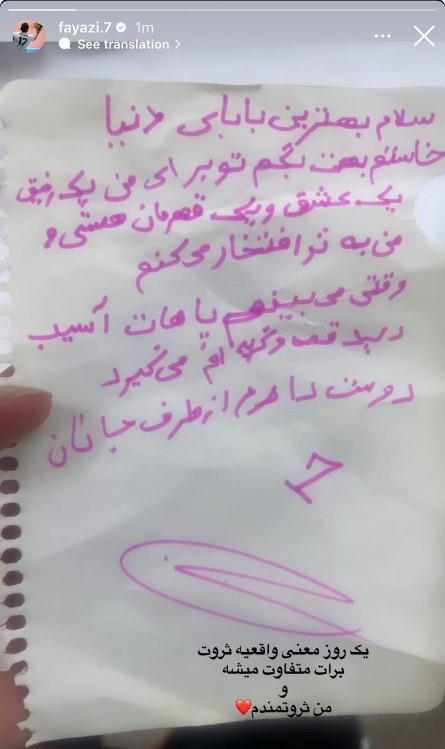 fayazi.7 1m
See translation >
سلام بهترین بابای دنیا
خاستم بهت بگم تو برای من یک رفیق
یک عشق و یک قهرمان هستی و
من به تو افتخار می‌کنم
وقتی می‌بینم پاهات آسیب
دیده و گریه ام می‌گیرد
دوست دارم از طرف جانان
7
یک روز معنی واقعیه ثروت
برات متفاوت میشه
و
من ثروتمندم❤️